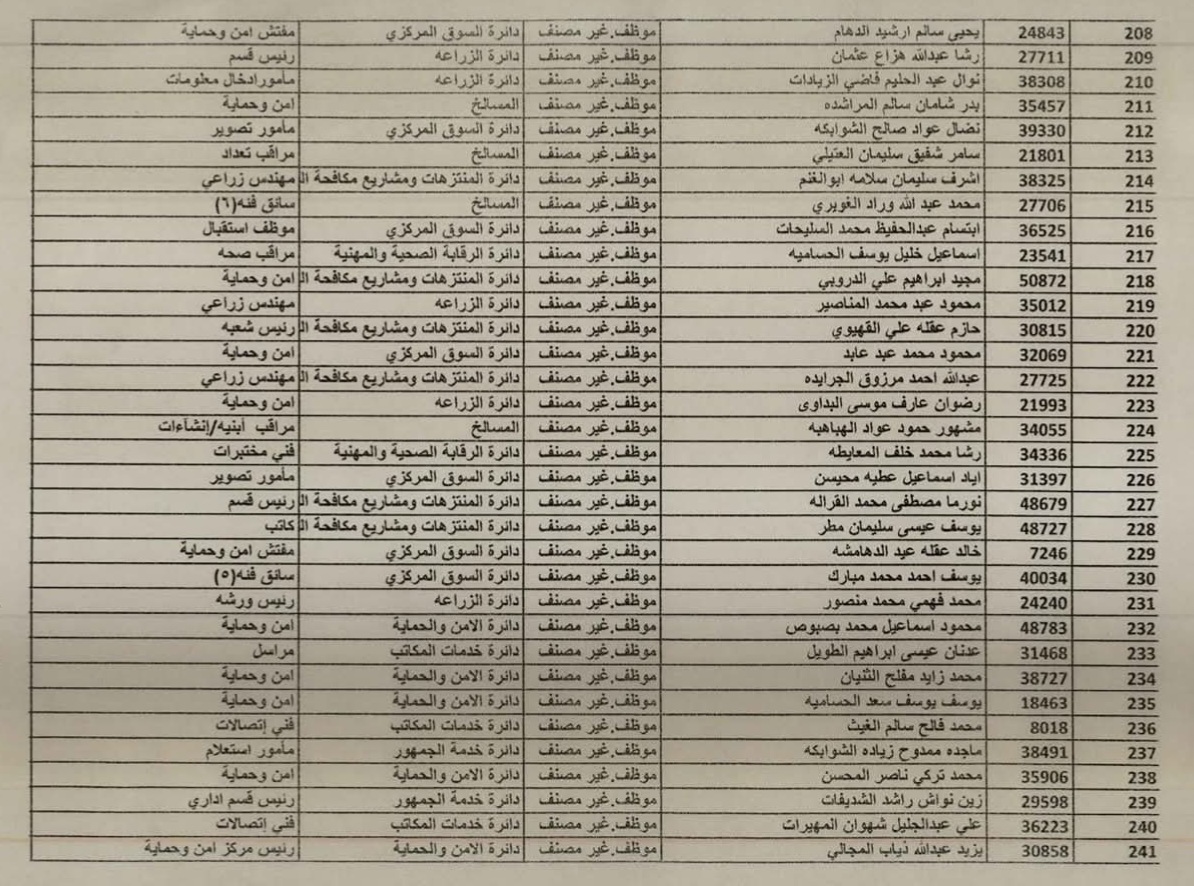 208 24843 يحيى سالم ارشيد الدهام موظف.غير مصنف دائرة السوق المركزي مفتش امن وحماية
209 27711 رشا عبدالله هزاع عثمان موظف.غير مصنف دائرة الزراعه رئيس قسم
210 38308 نوال عبد الحليم فاضي الزيادات موظف.غير مصنف دائرة الزراعه مأمورادخال معلومات
211 35457 بدر شامان سالم المراشده موظف.غير مصنف المسالخ امن وحماية
212 39330 نضال عواد صالح الشوابكه موظف.غير مصنف دائرة السوق المركزي مأمور تصوير
213 21801 سامر شفيق سليمان العتيلي موظف.غير مصنف المسالخ مراقب تعداد
214 38325 اشرف سليمان سلامه ابوالغنم موظف.غير مصنف دائرة المنتزهات ومشاريع مكافحة ال مهندس زراعي
215 27706 محمد عبد الله وراد الغويري موظف.غير مصنف المسالخ سائق فئه(٦)
216 36525 ابتسام عبدالحفيظ محمد السليحات موظف.غير مصنف دائرة السوق المركزي موظف استقبال
217 23541 اسماعيل خليل يوسف الحساميه موظف.غير مصنف دائرة الرقابة الصحية والمهنية مراقب صحه
218 50872 مجيد ابراهيم علي الدروبي موظف.غير مصنف دائرة المنتزهات ومشاريع مكافحة ال امن وحماية
219 35012 محمود عبد محمد المناصير موظف.غير مصنف دائرة الزراعه مهندس زراعي
220 30815 حازم عقله علي القهيوي موظف.غير مصنف دائرة المنتزهات ومشاريع مكافحة ال رئيس شعبه
221 32069 محمود محمد عبد عابد موظف.غير مصنف دائرة السوق المركزي امن وحماية
222 27725 عبدالله احمد مرزوق الجرايده موظف.غير مصنف دائرة المنتزهات ومشاريع مكافحة ال مهندس زراعي
223 21993 رضوان عارف موسى البداوى موظف.غير مصنف دائرة الزراعه امن وحماية
224 34055 مشهور حمود عواد الهباهبه موظف.غير مصنف المسالخ مراقب أبنيه/إنشاءات
225 34336 رشا محمد خلف المعايطه موظف.غير مصنف دائرة الرقابة الصحية والمهنية فني مختبرات
226 31397 اياد اسماعيل عطيه محيسن موظف.غير مصنف دائرة السوق المركزي مأمور تصوير
227 48679 نورما مصطفى محمد القراله موظف.غير مصنف دائرة المنتزهات ومشاريع مكافحة ال رئيس قسم
228 48727 يوسف عيسى سليمان مطر موظف.غير مصنف دائرة المنتزهات ومشاريع مكافحة ال كاتب
229 7246 خالد عقله عيد الدهامشه موظف.غير مصنف دائرة السوق المركزي مفتش امن وحماية
230 40034 يوسف احمد محمد مبارك موظف.غير مصنف دائرة السوق المركزي سائق فئه(٥)
231 24240 محمد فهمي محمد منصور موظف.غير مصنف دائرة الزراعه رئيس ورشه
232 48783 محمود اسماعيل محمد بصبوص موظف.غير مصنف دائرة الامن والحماية امن وحماية
233 31468 عدنان عيسى ابراهيم الطويل موظف.غير مصنف دائرة خدمات المكاتب مراسل
234 38727 محمد زايد مفلح الثنيان موظف.غير مصنف دائرة الامن والحماية امن وحماية
235 18463 يوسف يوسف سعد الحساميه موظف.غير مصنف دائرة الامن والحماية امن وحماية
236 8018 محمد فالح سالم الغيث موظف.غير مصنف دائرة خدمات المكاتب فني إتصالات
237 38491 ماجده ممدوح زياده الشوابكه موظف.غير مصنف دائرة خدمة الجمهور مأمور استعلام
238 35906 محمد تركي ناصر المحسن موظف.غير مصنف دائرة الامن والحماية امن وحماية
239 29598 زين نواش راشد الشديفات موظف.غير مصنف دائرة خدمة الجمهور رئيس قسم اداري
240 36223 علي عبدالجليل شهوان المهيرات موظف.غير مصنف دائرة خدمات المكاتب فني إتصالات
241 30858 يزيد عبدالله ذياب المجالي موظف.غير مصنف دائرة الامن والحماية رئيس مركز امن وحماية